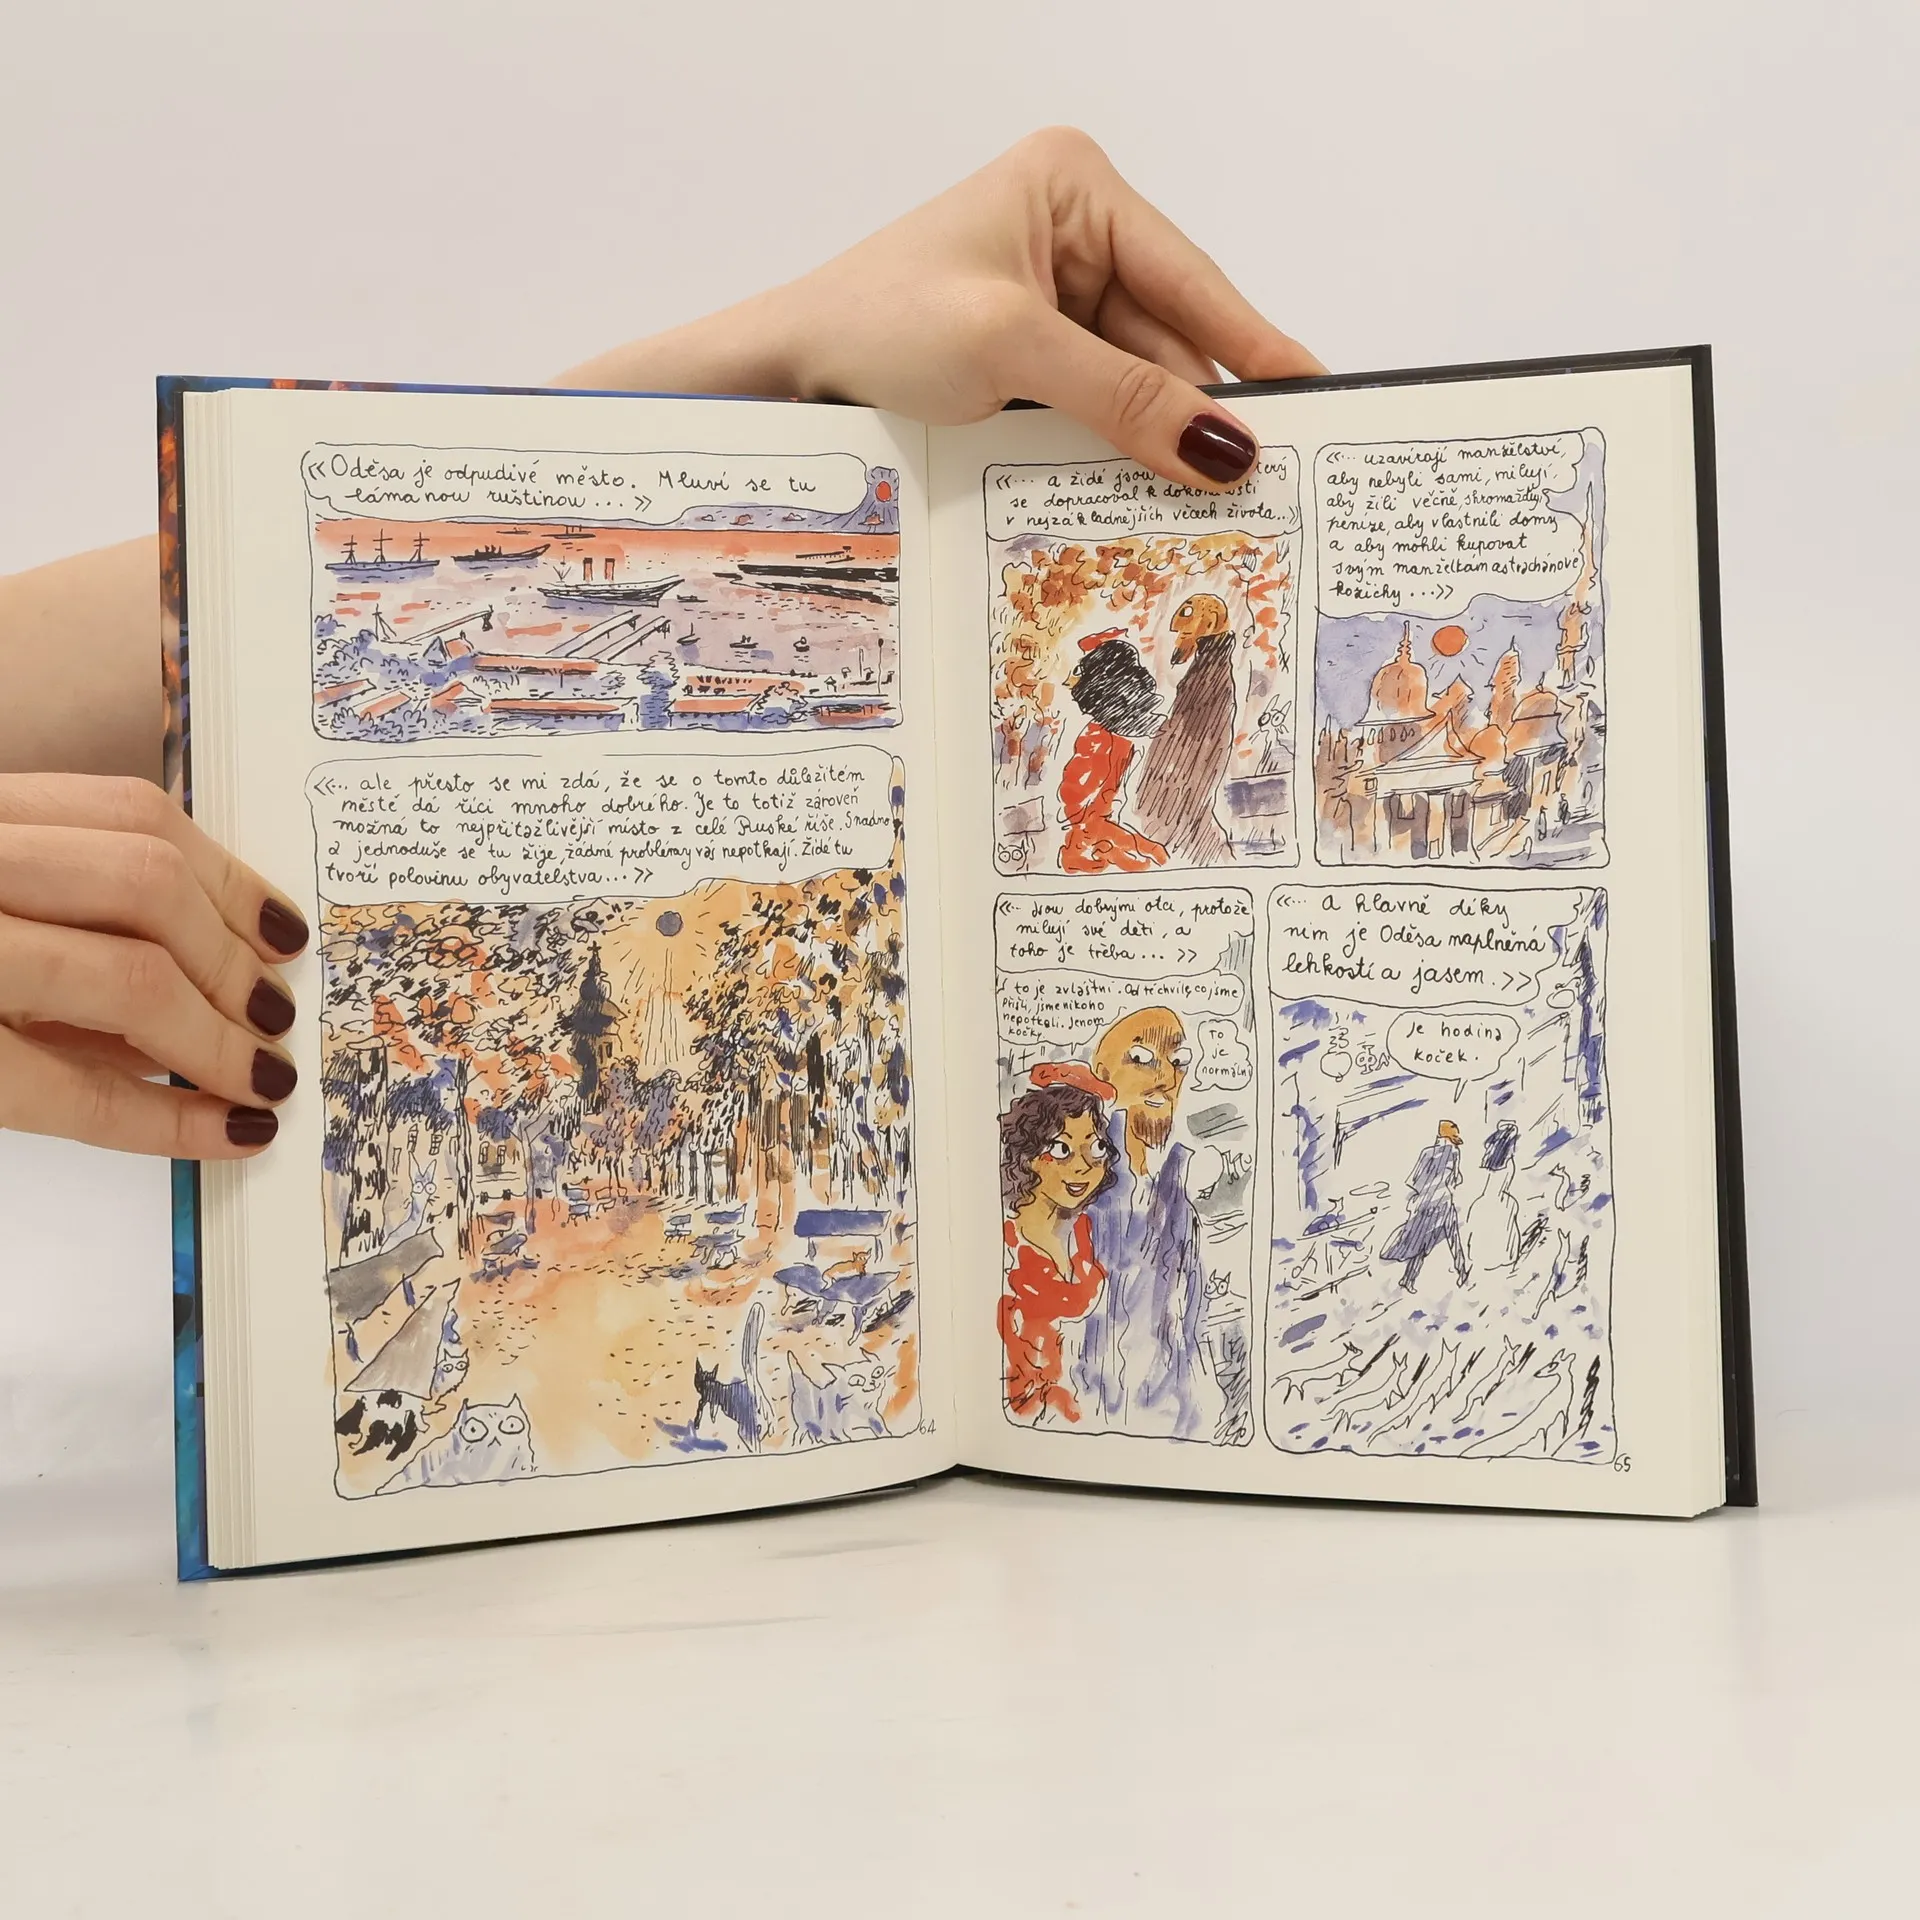 «Oděsa je odpudivé město. Mluví se tu
lámanou ruštinou...»
«... ale přesto se mi zdá, že se o tomto důležitém
městě dá říci mnoho dobrého. Je to totiž zároveň
možná to nejpřitažlivější místo z celé Ruské říše. Snadno
a jednoduše se tu žije, žádné problémy vás nepotkají. Židé tu
tvoří polovinu obyvatelstva...»
64
«... a židé jsou
se dopracoval k
v nejzákladnějších věcech života...»
«... uzavírají manželství,
aby nebyli sami, milují,
aby žili věčně, shromažďují
peníze, aby vlastnili domy
a aby mohli kupovat
svým manželkám astrachánové
kožichy...»
«... Jsou dobrými otci, protože
milují své děti, a
toho je třeba...»
to je zvláštní. Od té chvíle, co jsme
přišli, jsme nikoho
nepotkali. Jenom
kočky
To
je
normální
«... A hlavně díky
nim je Oděsa naplněná
lehkostí a jasem.»
Je hodina
koček.
65